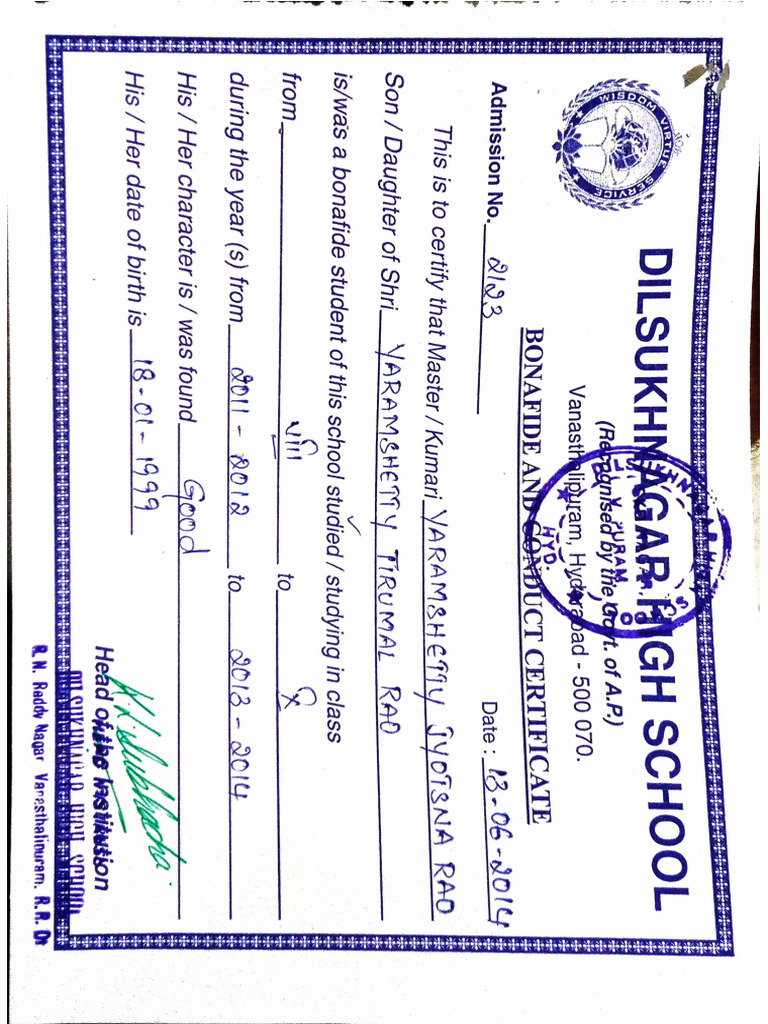 WISDOM VIRTUE SERVICE
DILSUKHNAGAR HIGH SCHOOL
(Recognised by the Govt. of A.P.)
Vanasthalipuram, Hyderabad - 500 070.
BONAFIDE AND CONDUCT CERTIFICATE
Admission No. 2123 Date : 13-06-2014
This is to certify that Master / Kumari YARAMSHETTY JYOTSNA RAO
Son / Daughter of Shri YARAMSHETTY TIRUMAL RAO
is/was a bonafide student of this school studied / studying in class
from viii to x
during the year (s) from 2011 - 2012 to 2013 - 2014
His / Her character is / was found Good
His / Her date of birth is 18-01-1999
Head of the Institution
DILSUKHNAGAR HIGH SCHOOL
R. N. Reddy Nagar Vanasthalipuram. R.R. Dt